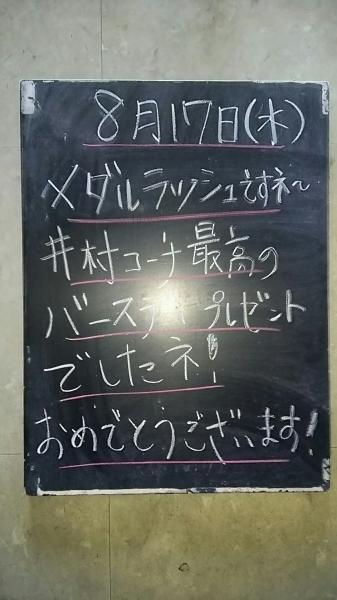 8月17日(水)
メダルラッシュですネ〜
井村コーチ最高の
バースディプレゼント
でしたネ!
おめでとうございます!